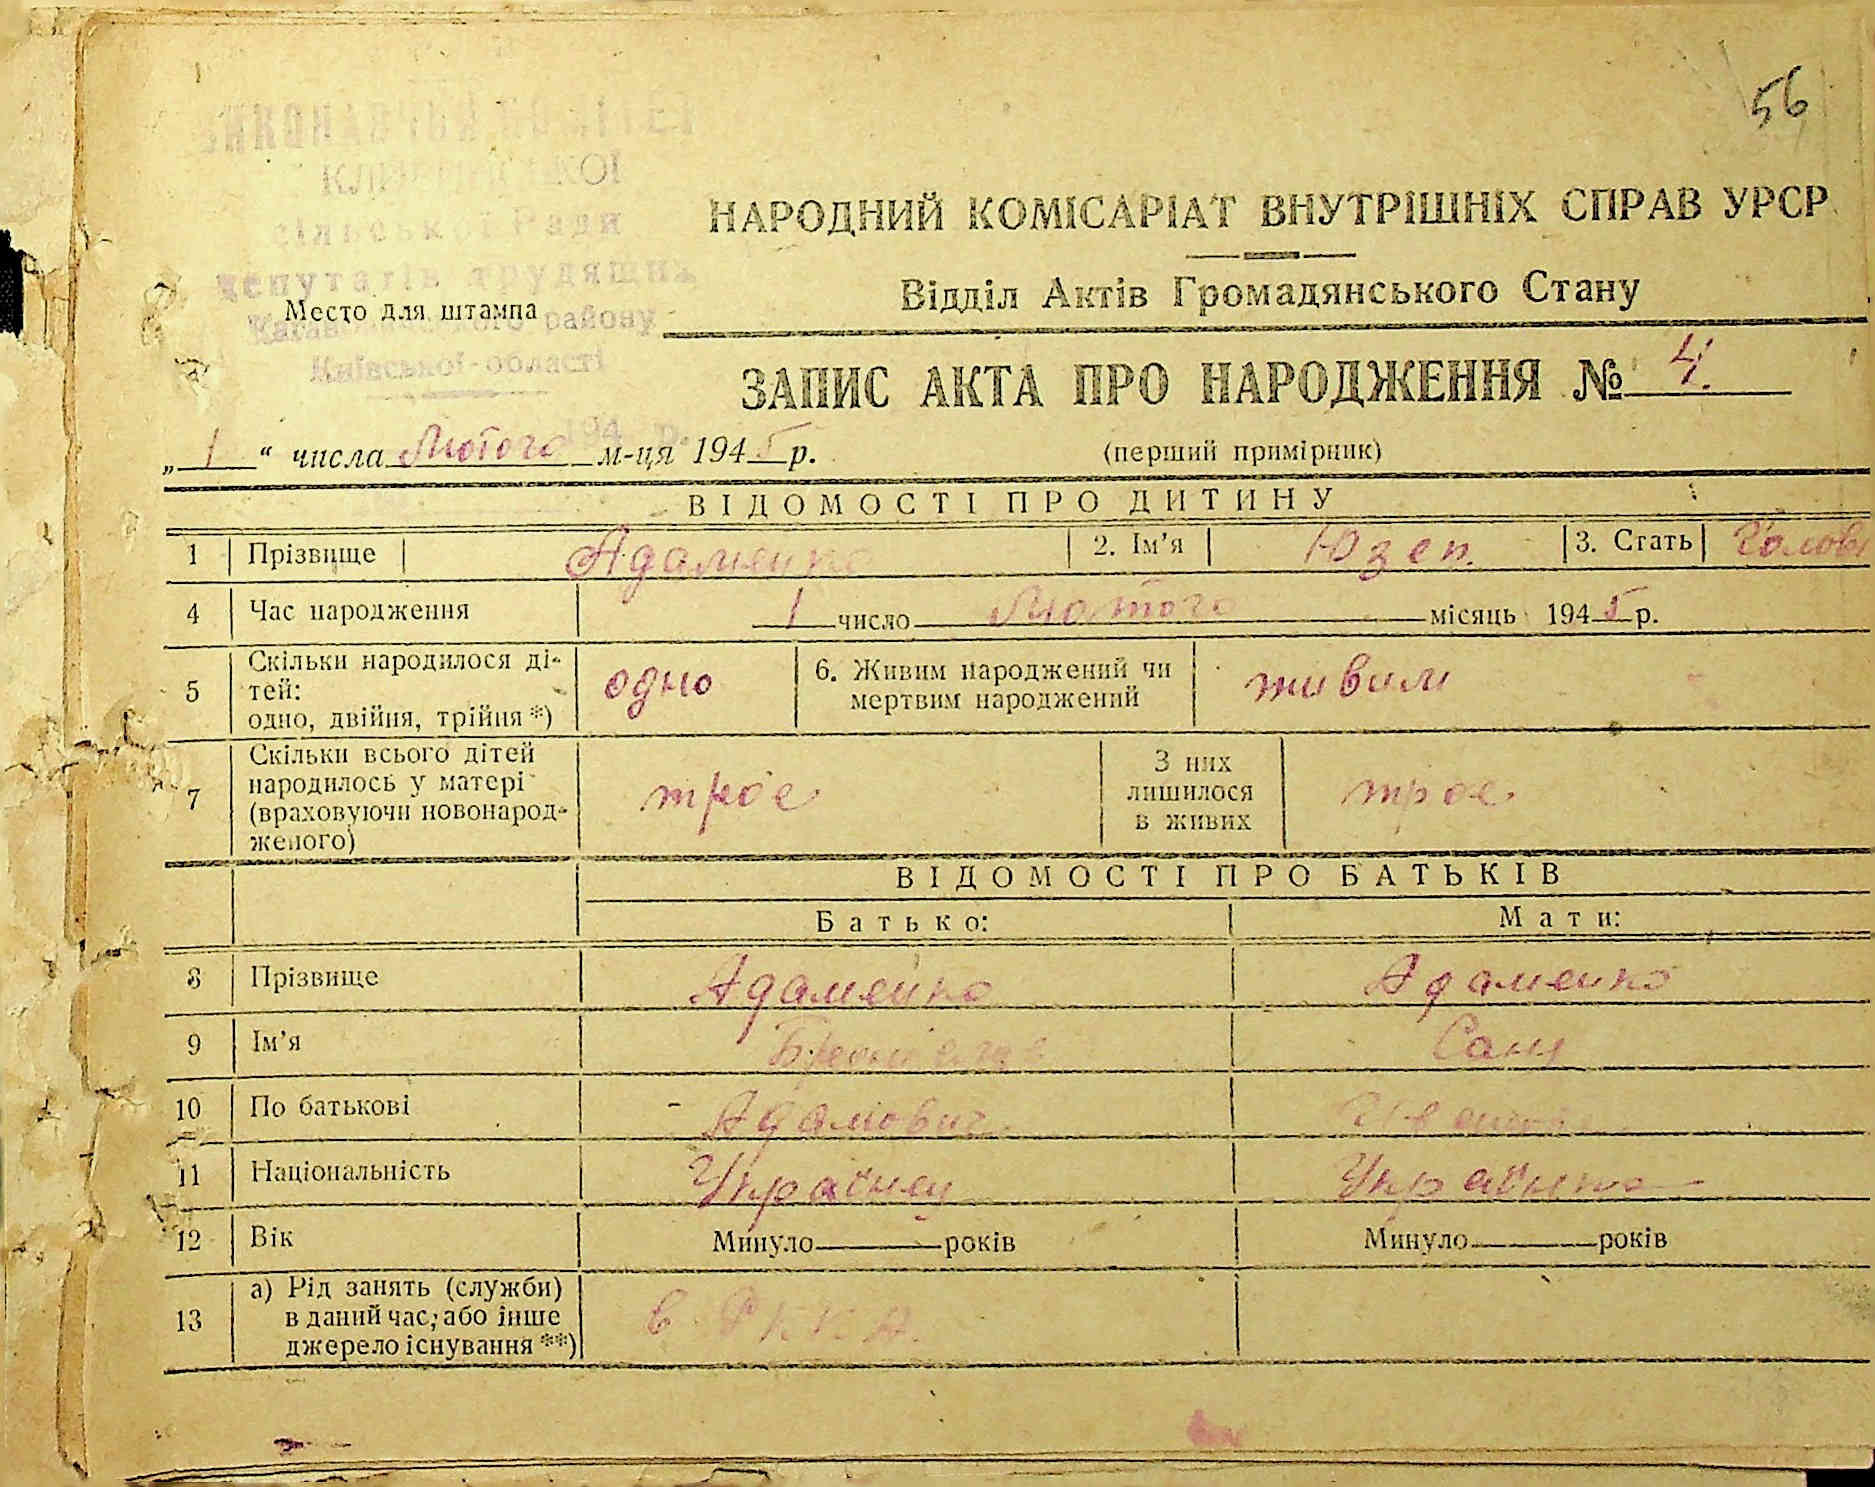 56
сільської Ради
депутатів трудящих
району
Київської області
Место для штампа
НАРОДНИЙ КОМІСАРІАТ ВНУТРІШНІХ СПРАВ УРСР
Відділ Актів Громадянського Стану
ЗАПИС АКТА ПРО НАРОДЖЕННЯ № 4.
„ 1 “ числа Лютого м-ця 1945 р.
(перший примірник)
ВІДОМОСТІ ПРО ДИТИНУ
1 Прізвище Адаменко 2. Ім’я Юзеп. 3. Стать Чолові
4 Час народження 1 число Лютого місяць 1945 р.
5 Скільки народилося ді-
тей:
одно, двійня, трійня *) одно 6. Живим народжений чи
мертвим народжений живим
7 Скільки всього дітей
народилось у матері
(враховуючи новонарод-
женого) троє З них
лишилося
в живих троє.
ВІДОМОСТІ ПРО БАТЬКІВ
Батько: Мати:
8 Прізвище Адаменко Адаменко
9 Ім’я Саня
10 По батькові Адамович
11 Національність Українец Українка
12 Вік Минуло років Минуло років
13 а) Рід занять (служби)
в даний час, або інше
джерело існування **) в РККА.